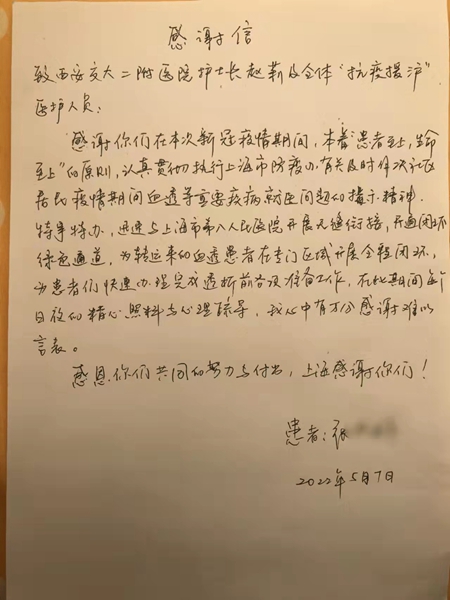 感谢信
致西安交大二附医院护士长赵新及全体“抗疫援沪”
医护人员：
感谢你们在本次新冠疫情期间，本着“患者至上，生命
至上”的原则，认真贯彻执行上海市防疫办有关及时解决社区
居民疫情期间血透等重要疾病就医问题的指示精神.
特事特办，迅速与上海市第八人民医院开展无缝衔接，开通闭环
绿色通道，为转运来的血透患者在专门区域开展全程闭环，
为患者们快速办理完成透析前各项准备工作，在此期间每个
日夜的精心照料与心理疏导，我心中有万分感谢难以
言表。
感恩你们共同的努力与付出，上海感谢你们！
患者：张
2022年5月7日